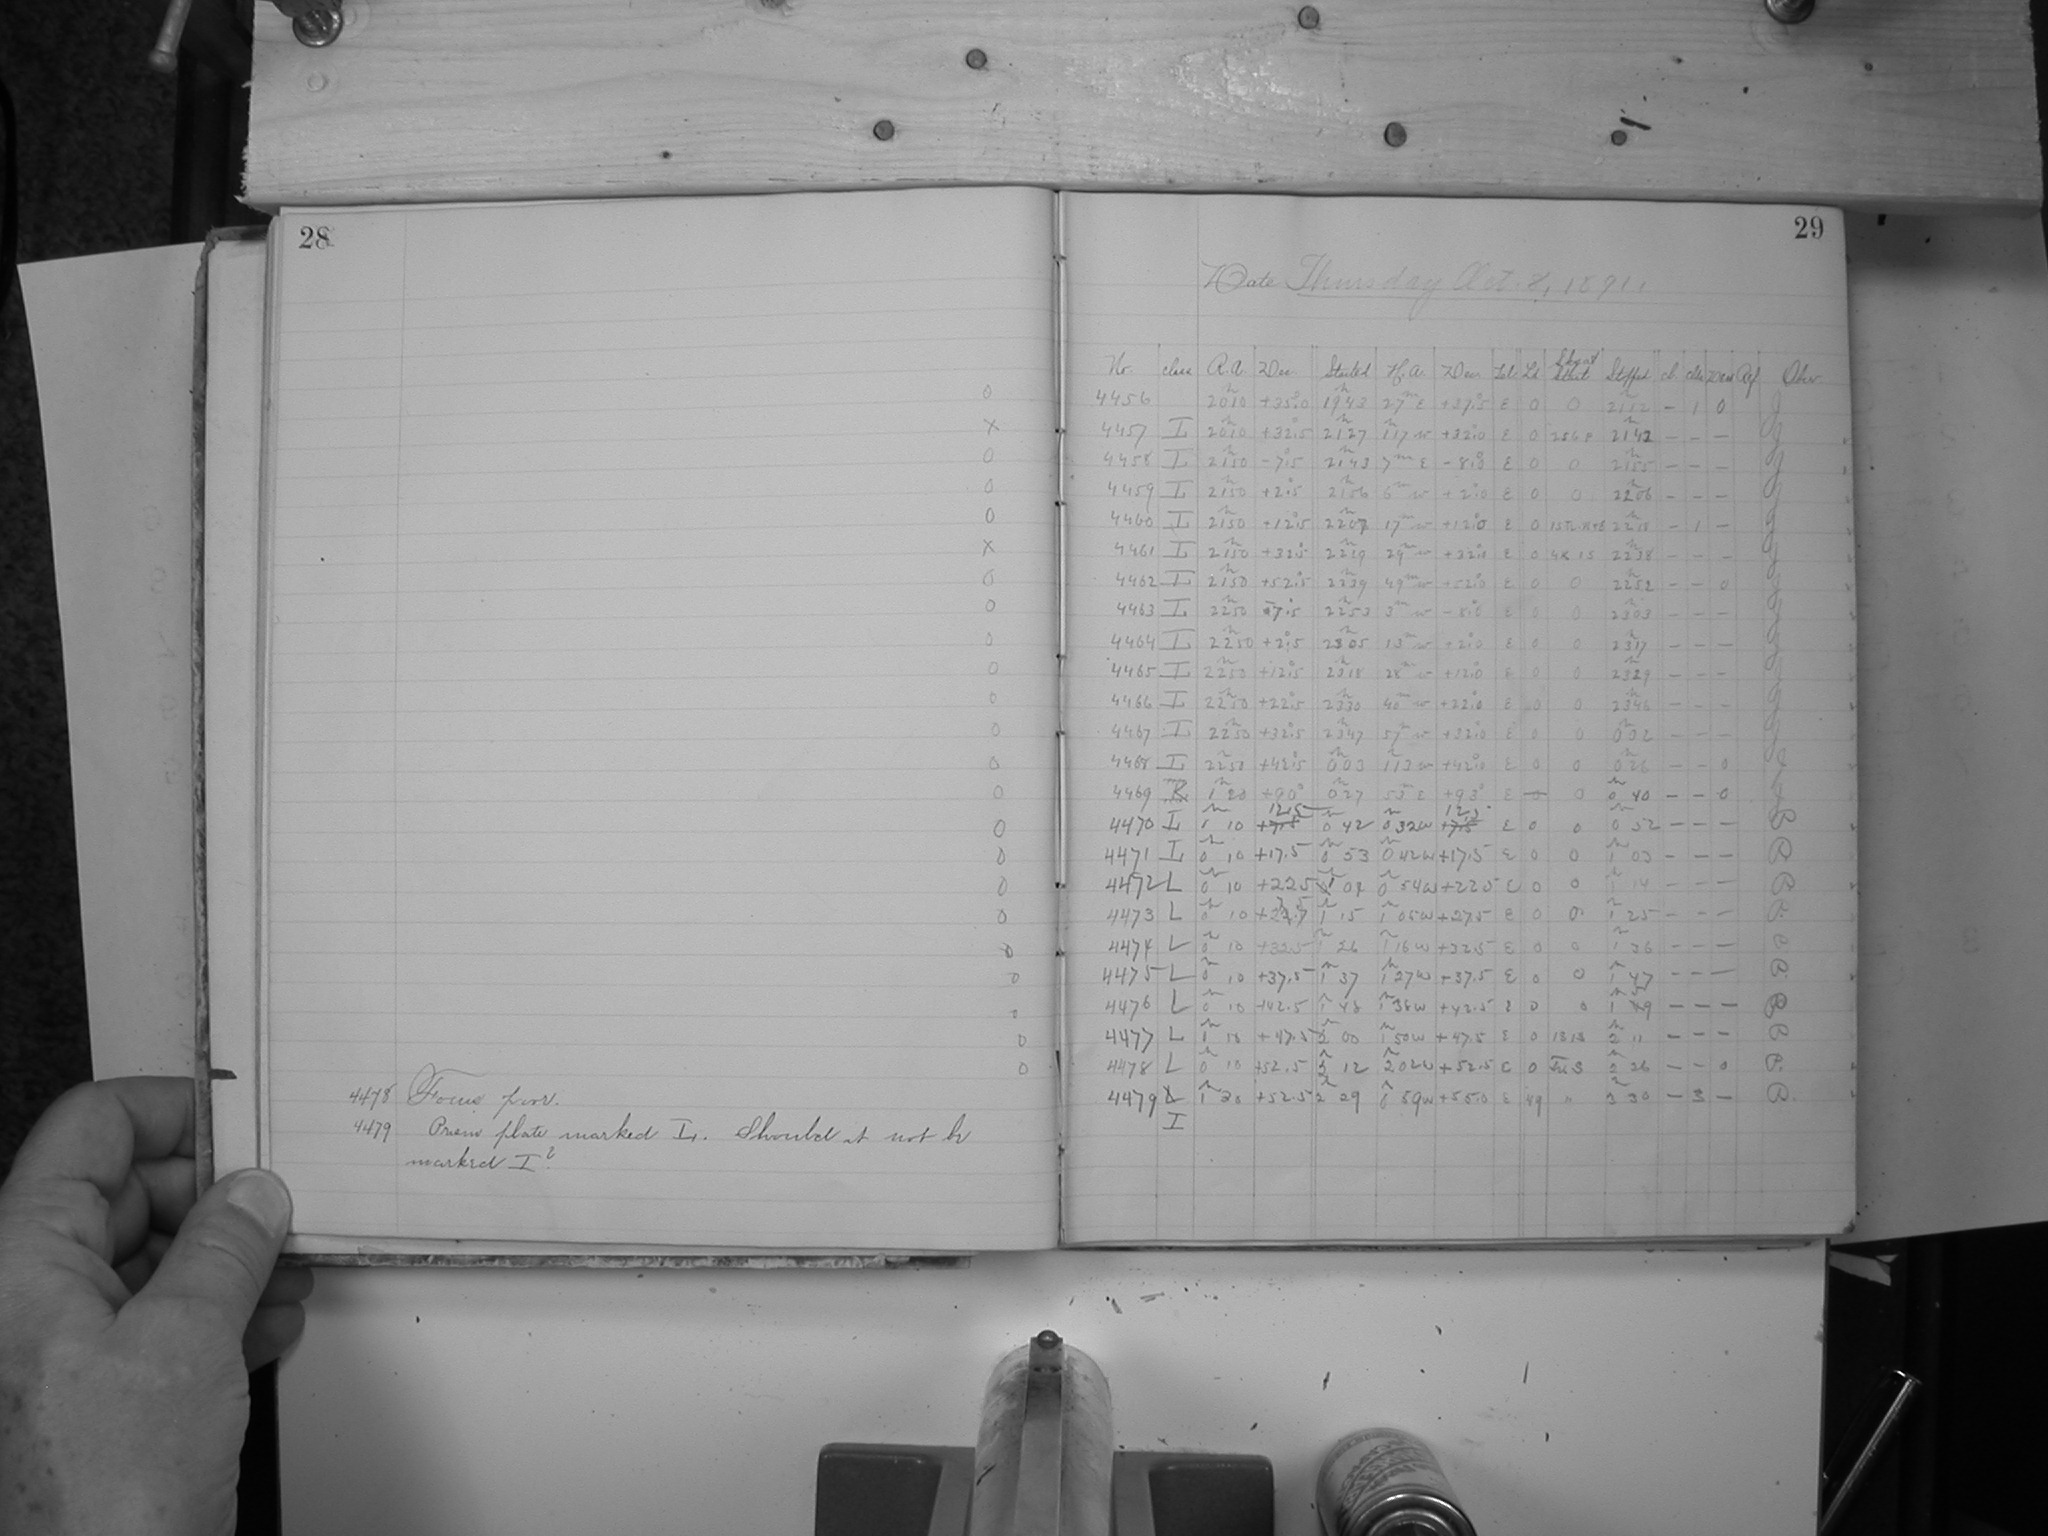 28
4478 Focus poor.
4479 Prism plate marked L. Should it not be
marked I?
29
Date Thursday Oct. 8, 1891.
No. class R.A. Dec. Started H.A. Dec. Tel. Ld. Stopped Obs.
4456 20 10 +35.0 19 43 27m E +37.5 E 0 0 - 1 0
4457 I 20 10 +32.5 21 27 1 17 w +32.0 E 0 21 42 - - -
4458 I 21 50 -7.5 21 43 7m E -8.0 E 0 0 21 55 - - -
4459 I 21 50 +2.5 21 56 6m w +2.0 E 0 0 22 06 - - -
4460 I 21 50 +12.5 22 07 17m w +12.0 E 0 22 18 - 1 -
4461 I 21 50 +32.5 22 19 29m w +32.0 E 0 22 38 - - -
4462 I 21 50 +52.5 22 39 49m w +52.0 E 0 0 22 52 - - 0
4463 I 22 50 -7.5 22 53 3m w -8.0 E 0 0 23 03 - - -
4464 I 22 50 +2.5 23 05 +2.0 E 0 0 23 17 - - -
4465 I 22 50 +12.5 23 18 28m w +12.0 E 0 0 23 29 - - -
4466 I 22 50 +22.5 23 30 40m w +22.0 E 0 0 23 46 - - -
4467 I 22 50 +32.5 23 47 57m w +32.0 E 0 0 0 02 - - -
4468 I 22 50 +42.5 0 03 1 13 w +42.0 E 0 0 0 26 - - 0
4469 1 20 +90° 0 27 53m E +93° E - 0 0 40 - - 0
4470 I 10 12.5 0 42 0 32 w 12.5 E 0 0 0 52 - - - B
4471 I 0 10 +17.5 0 53 0 42 w +17.5 E 0 0 1 03 - - - B
4472 L 0 10 +22.5 1 04 0 54 w +22.5 E 0 0 1 14 - - - B
4473 L 0 10 1 15 1 05 w +27.5 E 0 0 1 25 - - - B
4474 L 0 10 +32.5 1 26 1 16 w +32.5 E 0 0 1 36 - - - B
4475 L 0 10 +37.5 1 37 1 27 w +37.5 E 0 0 1 47 - - - B
4476 L 0 10 +42.5 1 48 1 38 w +42.5 E 0 0 1 - - - B
4477 L +47.5 2 00 1 50 w +47.5 E 0 2 11 - - - B
4478 L 0 10 +52.5 2 12 2 02 w +52.5 E 0 2 26 - - 0 B
4479 I +52.5 2 29 59 w +55.0 E 49 " 3 30 - 3 - B